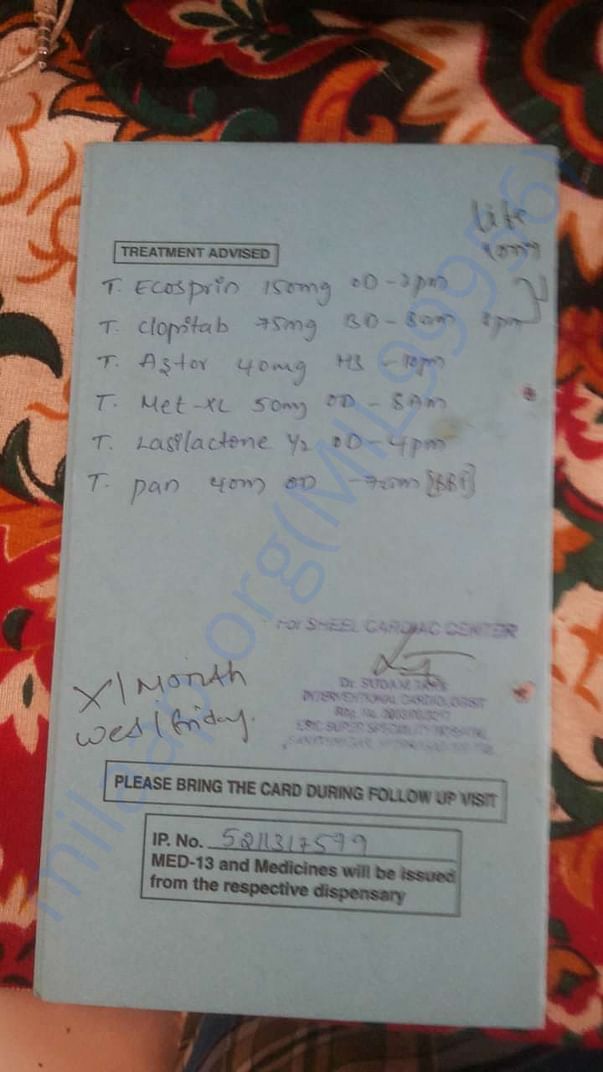 life
long
TREATMENT ADVISED
T. Ecosprin 150mg OD - 2pm
T. Clopitab 75mg BD - 8am 8pm
T. Astor 40mg HS - 10pm
T. Met-XL 50mg OD - 8AM
T. Lasilactone 1/2 OD - 4pm
T. pan 40m OD - 7am [BBF]
For SHEEL CARDIAC CENTER
INTERVENTIONAL CARDIOLOGIST
X 1 Month
Wed / friday.
PLEASE BRING THE CARD DURING FOLLOW UP VISIT
IP. No. 5211317599
MED-13 and Medicines will be issued
from the respective dispensary
milaap.org(MIL99956)